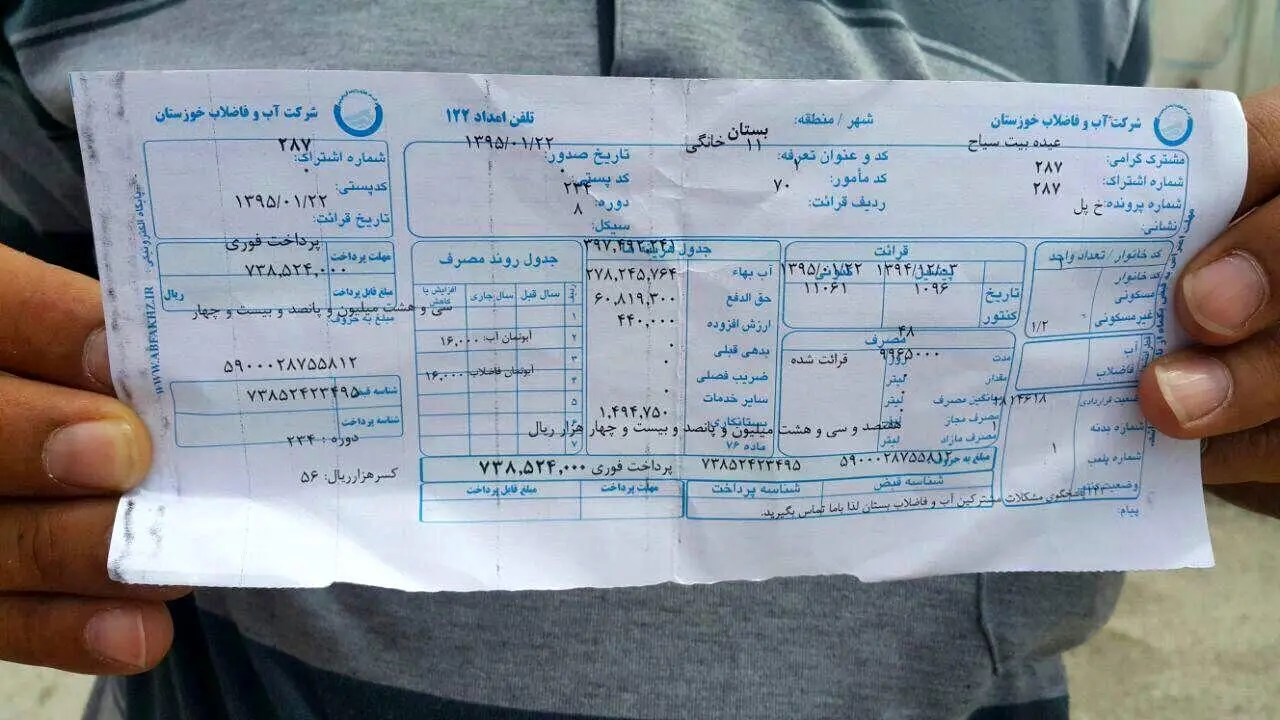 شرکت آب و فاضلاب خوزستان
مشترک گرامی: عبده بیت سیاح
شماره اشتراک: ۲۸۷
شماره پرونده: ۲۸۷
نشانی: خ پل
شهر / منطقه: بستان
کد و عنوان تعرفه: ۱۱ خانگی
کد مأمور: ۲
ردیف قرائت: ۷۰
تلفن امداد ۱۲۲
تاریخ صدور: ۱۳۹۵/۰۱/۲۲
کد پستی: ۰
دوره: ۲۳۴
سیکل: ۸
کد خانوار / تعداد واحد
کد خانوار
مسکونی
غیرمسکونی ۱/۲
آب
فاضلاب
وضعیت قراردادی
شماره بدنه ۱۴۶۱۸
شماره پلمب ۱
وضعیت کنتور
پیام:
قرائت
پیشین کنونی
تاریخ ۱۳۹۴/۱۲/۰۳ ۱۳۹۵/۰۱/۲۲
کنتور ۱۰۹۶ ۱۱۰۶۱
مصرف
مدت ۴۸ روز
مقدار ۹۹۶۵۰۰۰ لیتر قرائت شده
میانگین مصرف ۰ لیتر
مصرف مجاز ۰ لیتر
مصرف مازاد ۱ لیتر
جدول هزینه ها
۳۹۷,۴۹۲,۲۴۵
آب بهاء ۲۷۸,۲۴۵,۷۶۴
حق الدفع ۶۰,۸۱۹,۳۰۰
ارزش افزوده ۴۴۰,۰۰۰
بدهی قبلی ۰
ضریب فصلی ۰
سایر خدمات ۰
بستانکاری ۱,۴۹۴,۷۵۰
ماده ۷۶
جدول روند مصرف
ردیف سال قبل سال جاری افزایش یا کاهش
۱
۲ آبونمان آب: ۱۶,۰۰۰
۳
۴ آبونمان فاضلاب ۱۶,۰۰۰
۵
۷
هفتصد و سی و هشت میلیون و پانصد و بیست و چهار هزار ریال
مبلغ به حروف ۵۹۰۰۰۲۸۷۵۵۸۱۲ ۷۳۸۵۲۴۲۳۴۹۵ پرداخت فوری ۷۳۸,۵۲۴,۰۰۰
شناسه قبض شناسه پرداخت مهلت پرداخت مبلغ قابل پرداخت
پاسخگوی مشکلات مشترکین آب و فاضلاب بستان لذا باما تماس بگیرید.
شرکت آب و فاضلاب خوزستان
شماره اشتراک: ۲۸۷
کدپستی: ۰
تاریخ قرائت: ۱۳۹۵/۰۱/۲۲
مهلت پرداخت پرداخت فوری
مبلغ قابل پرداخت ۷۳۸,۵۲۴,۰۰۰ ریال
مبلغ به حروف:
سی و هشت میلیون و پانصد و بیست و چهار
۵۹۰۰۰۲۸۷۵۵۸۱۲
شناسه قبض ۷۳۸۵۲۴۲۳۴۹۵
شناسه پرداخت
دوره : ۲۳۴
کسرهزارریال: ۵۶
پایگاه الکترونیکی: WWW.ABFAKHZ.IR